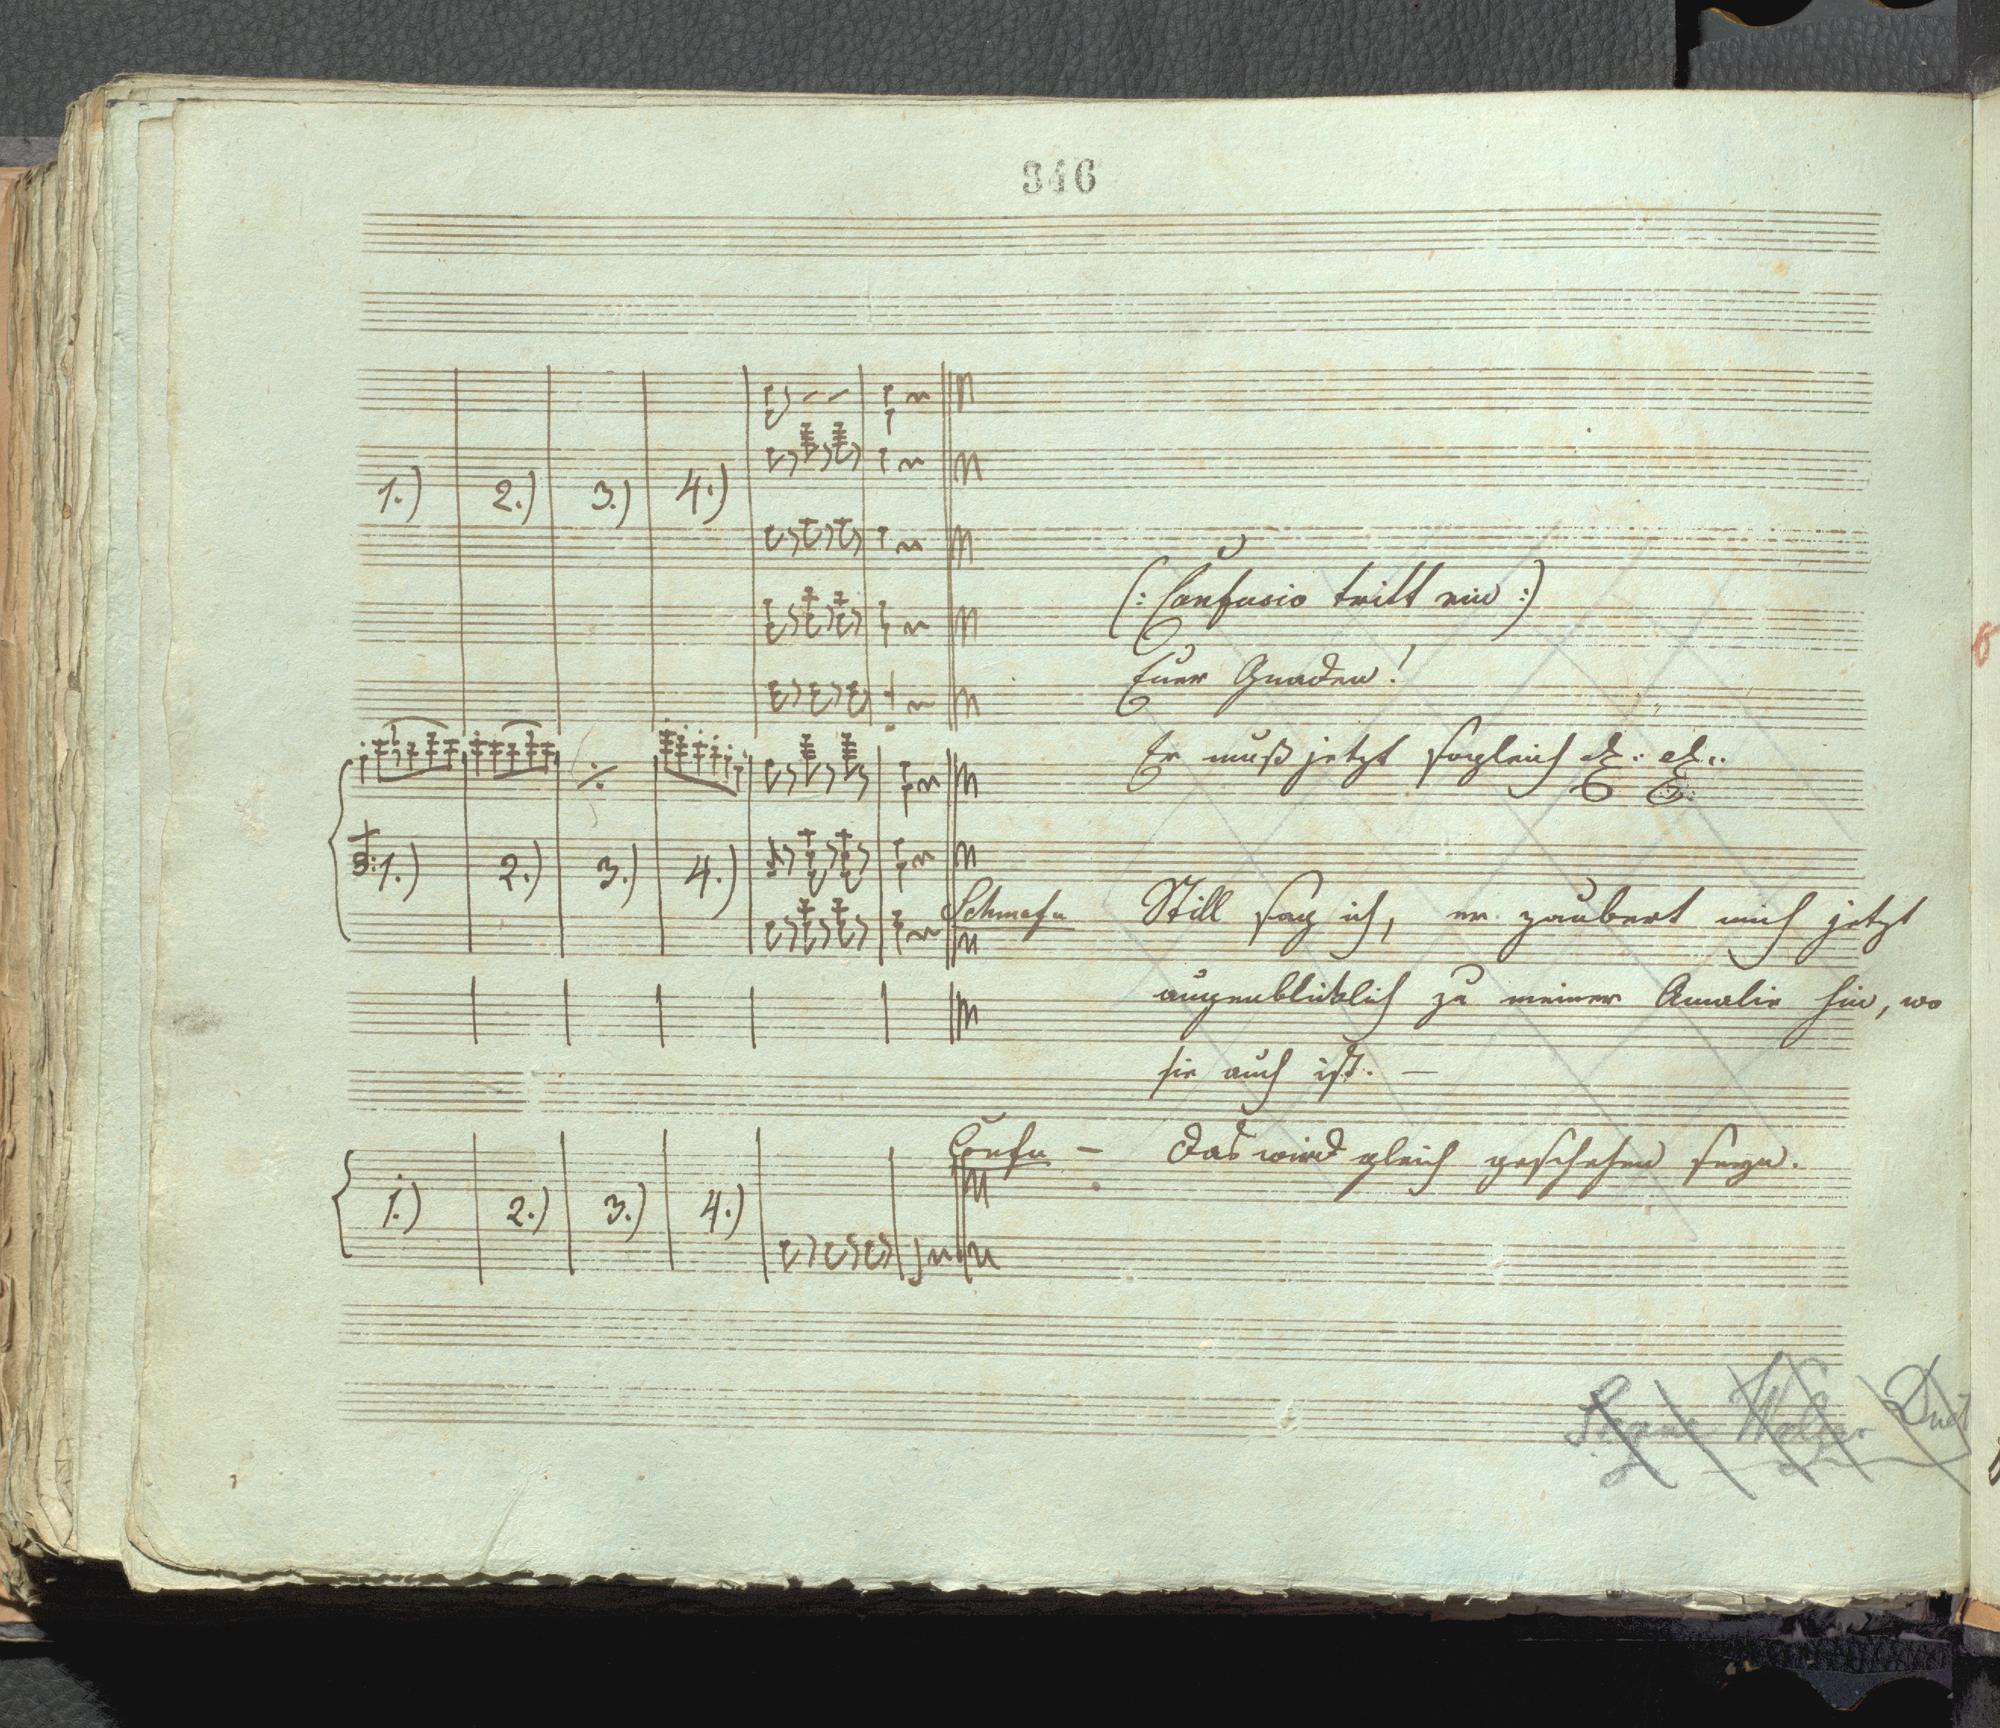 346
1.) 2.) 3.) 4.)
(: Confusio tritt ein :)
Euer Gnaden!
Er muß jetzt sogleich etc: etc:
8: 1.) 2.) 3.) 4.)
Schmafu Still sag ich, er zaubert mich jetzt
augenblicklich zu meiner Amalie hin, wo
sie auch ist. —
Confu — Das wird gleich geschehen seyn.
1.) 2.) 3.) 4.)
Walzer Duet